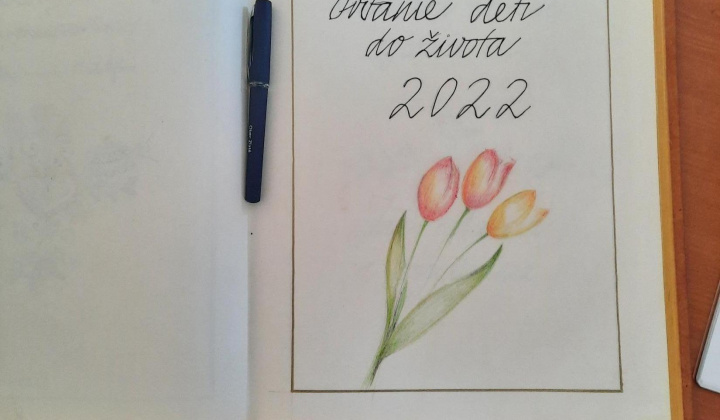 Vítanie detí
do života
2022